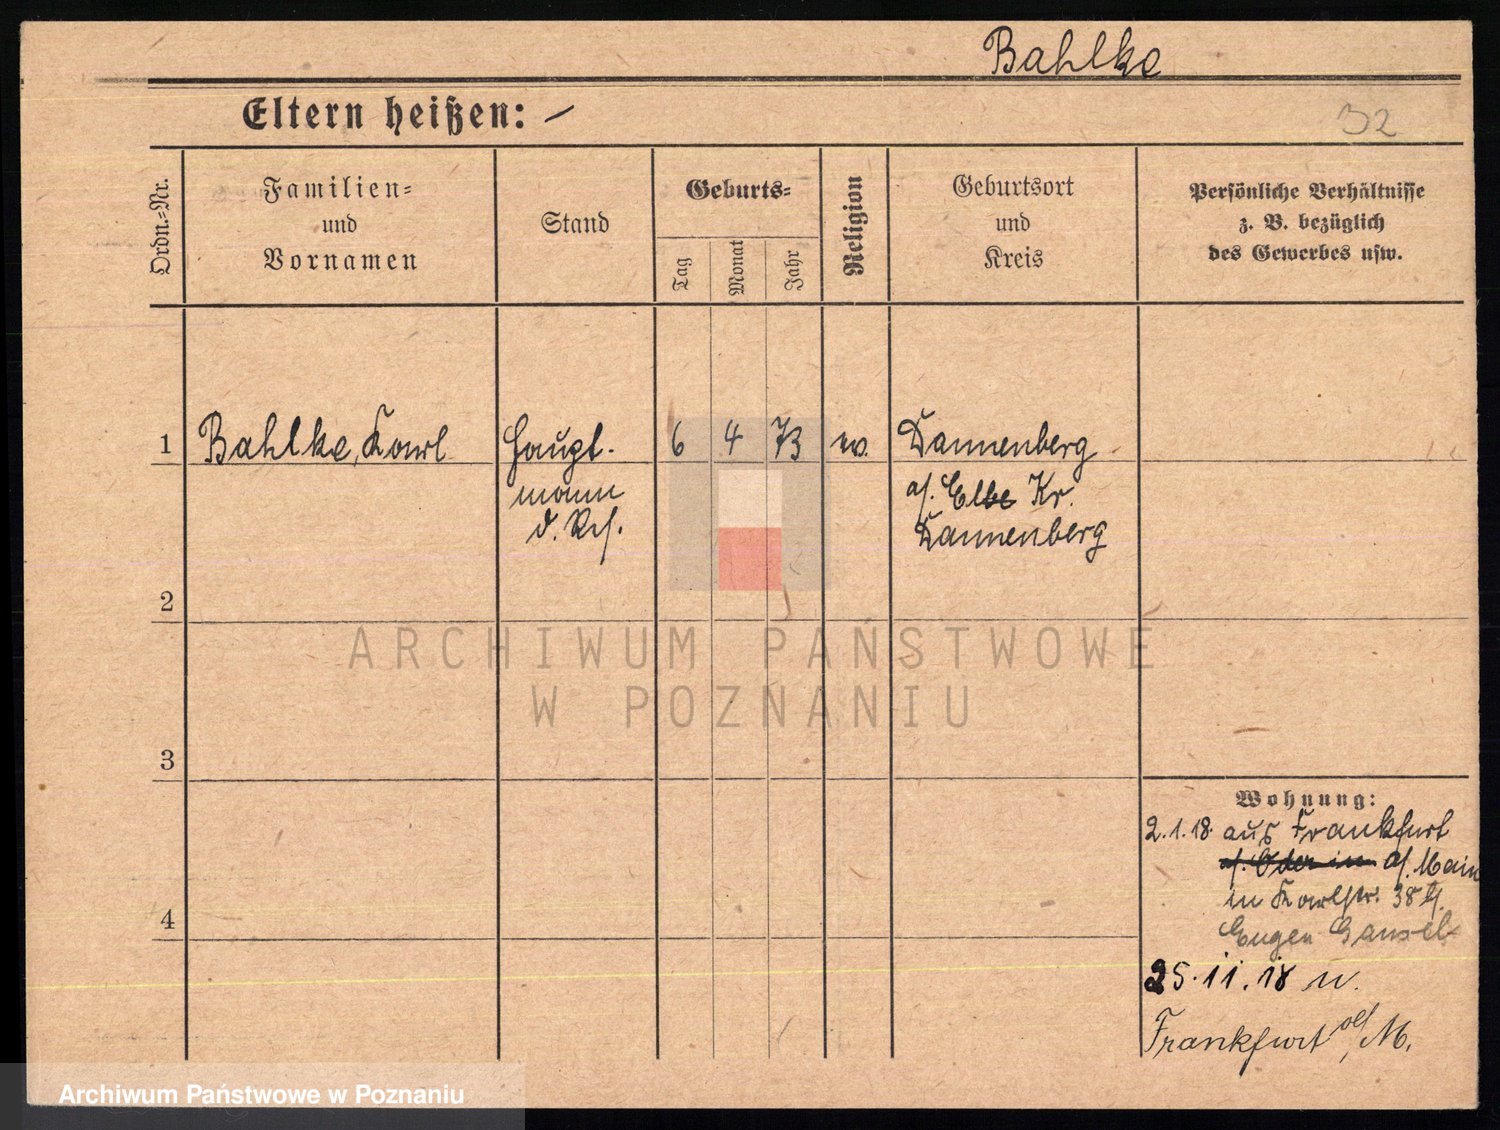 Bahlke
Eltern heißen: –
32
Ordn.=Nr.
Familien=
und
Vornamen
Stand
Geburts=
Tag
Monat
Jahr
Religion
Geburtsort
und
Kreis
Persönliche Verhältnisse
z. B. bezüglich
des Gewerbes usw.
1 Bahlke, Karl Haupt- 6 4 73 ev. Dannenberg
mann a/. Elbe Kr.
d. Res. Dannenberg
2
3
4
Wohnung:
2.1.18. aus Frankfurt
a/. Oder in a/. Main
in Karlstr. 38
Eugen
25.11.18 n.
Frankfurt a/M.
ARCHIWUM PAŃSTWOWE
W POZNANIU
Archiwum Państwowe w Poznaniu